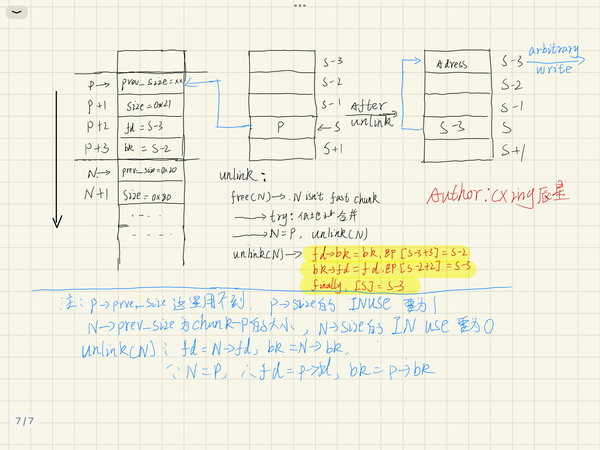 P→ prev_size=xx
P+1 Size=0x21
P+2 fd=S-3
P+3 bk=S-2
N→ prev_size=0x20
N+1 Size=0x80
S-3
S-2
S-1
P ←S
S+1
After
unlink
Adress S-3
S-2
S-1
S-3 S
S+1
arbitrary
write
unlink:
free(N)→. N isn't fast chunk
→ try: 低地址合并
→N=P, unlink(N)
unlink(N)→ fd→bk=bk,即[S-3+3]=S-2
bk→fd=fd.即[S-2+2]=S-3
finally, [S]=S-3
Author:cxing辰星
注: P→prve_size 这里用不到, P→size的 INUSE 要为1
N→prev_size为chunk-P的大小, N→size的 IN USE 要为0
unlink(N): fd=N→fd, bk=N→bk,
∵N=P, ∴fd=P→fd, bk=P→bk
7/7